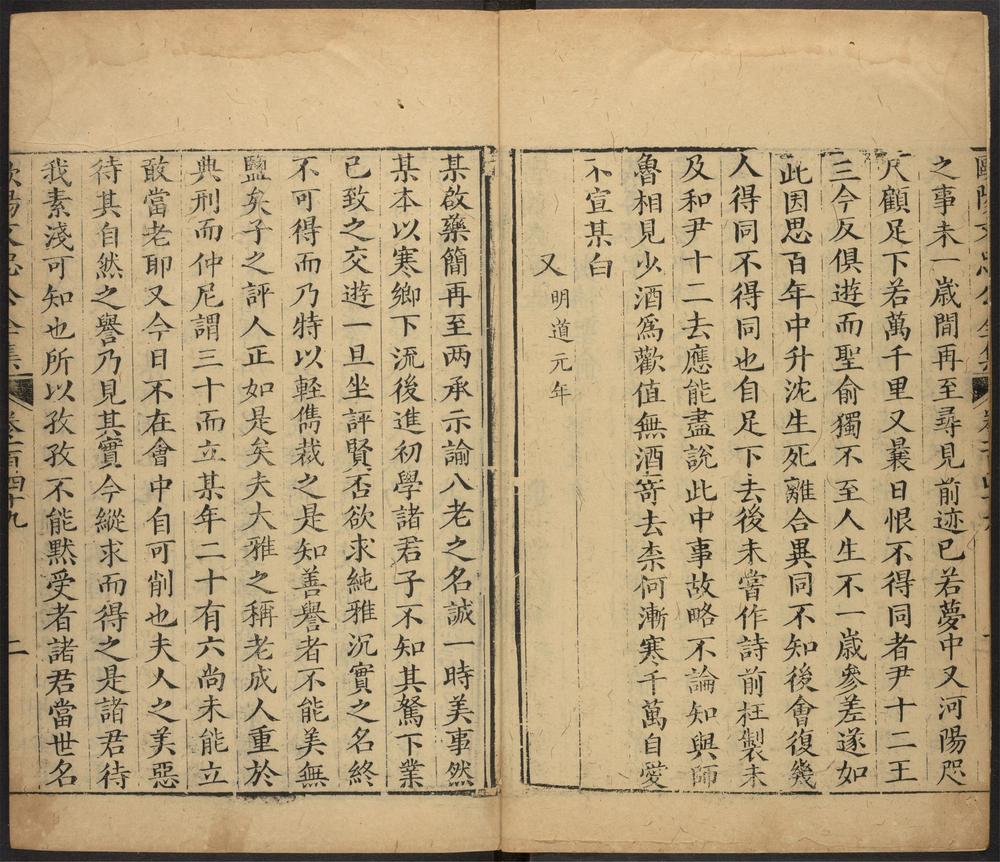 歐陽文忠公全集
之事未一歲間再至尋見前迹已若夢中又河陽咫
尺顧足下若萬千里又曩日恨不得同者尹十二王
三今反俱遊而聖俞獨不至人生不一歲參差遂如
此因思百年中升沈生死離合異同不知後會復幾
人得同不得同也自足下去後未嘗作詩前枉製未
及和尹十二去應能盡說此中事故略不論知與師
魯相見少酒爲歡值無酒寄去柰何漸寒千萬自愛
不宣某白
又 明道元年
某啟藥簡再至兩承示諭八老之名誠一時美事然
某本以寒鄉下流後進初學諸君子不知其駑下業
已致之交遊一旦坐評賢否欲求純雅沉實之名終
不可得而乃特以輕儁裁之是知善譽者不能美無
鹽矣子之評人正如是矣夫大雅之稱老成人重於
典刑而仲尼謂三十而立某年二十有六尚未能立
敢當老耶又今日不在會中自可削也夫人之美惡
待其自然之譽乃見其實今縱求而得之是諸君待
我素淺可知也所以孜孜不能默受者諸君當世名
歐陽文忠公全集 卷一百四十九 二